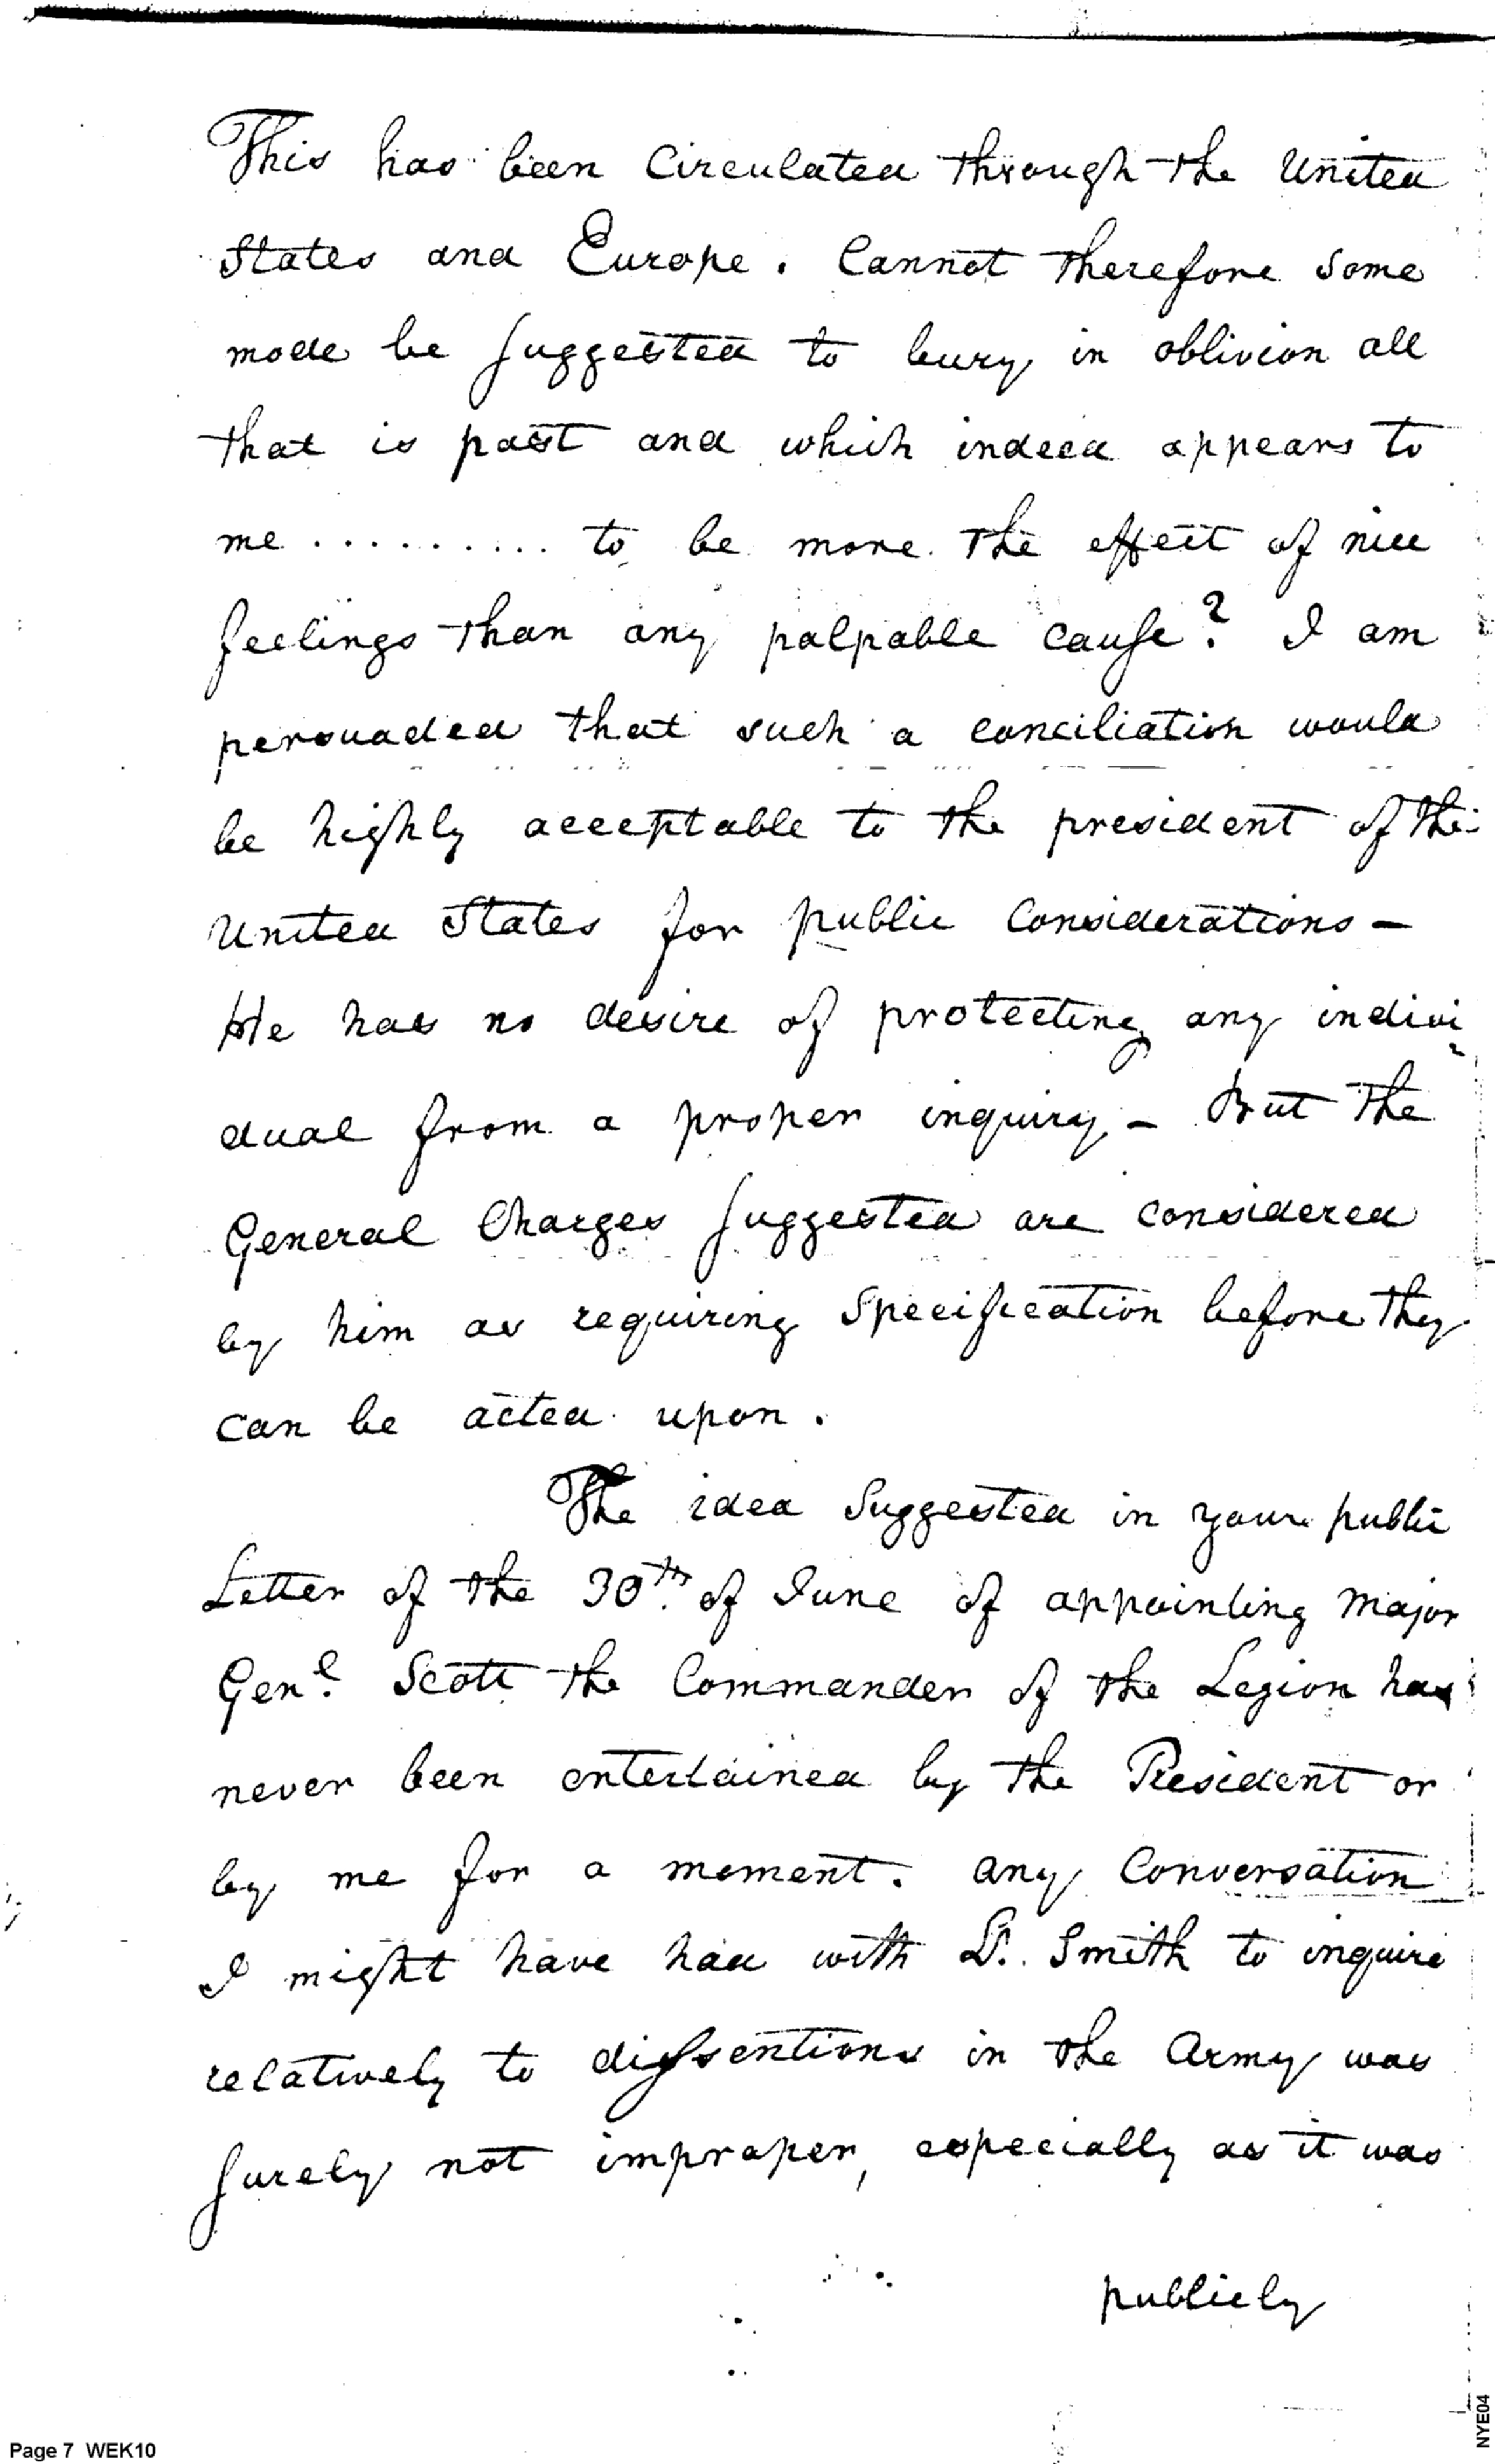 This has been Circulated through the United
States and Europe. Cannot therefore some
mode be suggested to bury in oblivion all
that is past and which indeed appears to
me .......... to be more the effect of nice
feelings than any palpable cause? I am
persuaded that such a conciliation would
be highly acceptable to the president of the
United States for public Considerations —
He has no desire of protecting any indivi
dual from a proper inquiry, — But the
General Charges suggested are considered
by him as requiring Specification before they
can be acted upon.
The idea Suggested in your public
Letter of the 30th. of June of appointing Major
Genl. Scott the Commander of the Legion has
never been entertained by the President or
by me for a moment. any Conversation
I might have had with Lt. Smith to inquire
relatively to dissentions in the Army was
surely not improper, especially as it was
publicly
Page 7 WEK10
NYE04